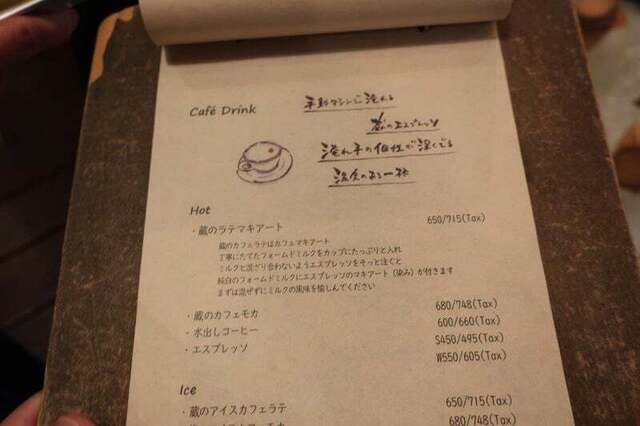 Café Drink
手動マシンで淹れる
蔵のエスプレッソ
淹れ手の個性が深くでる
渾身の一杯
Hot
・蔵のラテマキアート 650/715(Tax)
蔵のカフェラテはカフェマキアート
丁寧にたてたフォームドミルクをカップにたっぷりと入れ
ミルクと混ざり合わないようエスプレッソをそっと注ぐと
純白のフォームドミルクにエスプレッソのマキアート（染み）が付きます
まずは混ぜずにミルクの風味を愉しんでください
・蔵のカフェモカ 680/748(Tax)
・水出しコーヒー 600/660(Tax)
・エスプレッソ S450/495(Tax)
W550/605(Tax)
Ice
・蔵のアイスカフェラテ 650/715(Tax)
680/748(Tax)